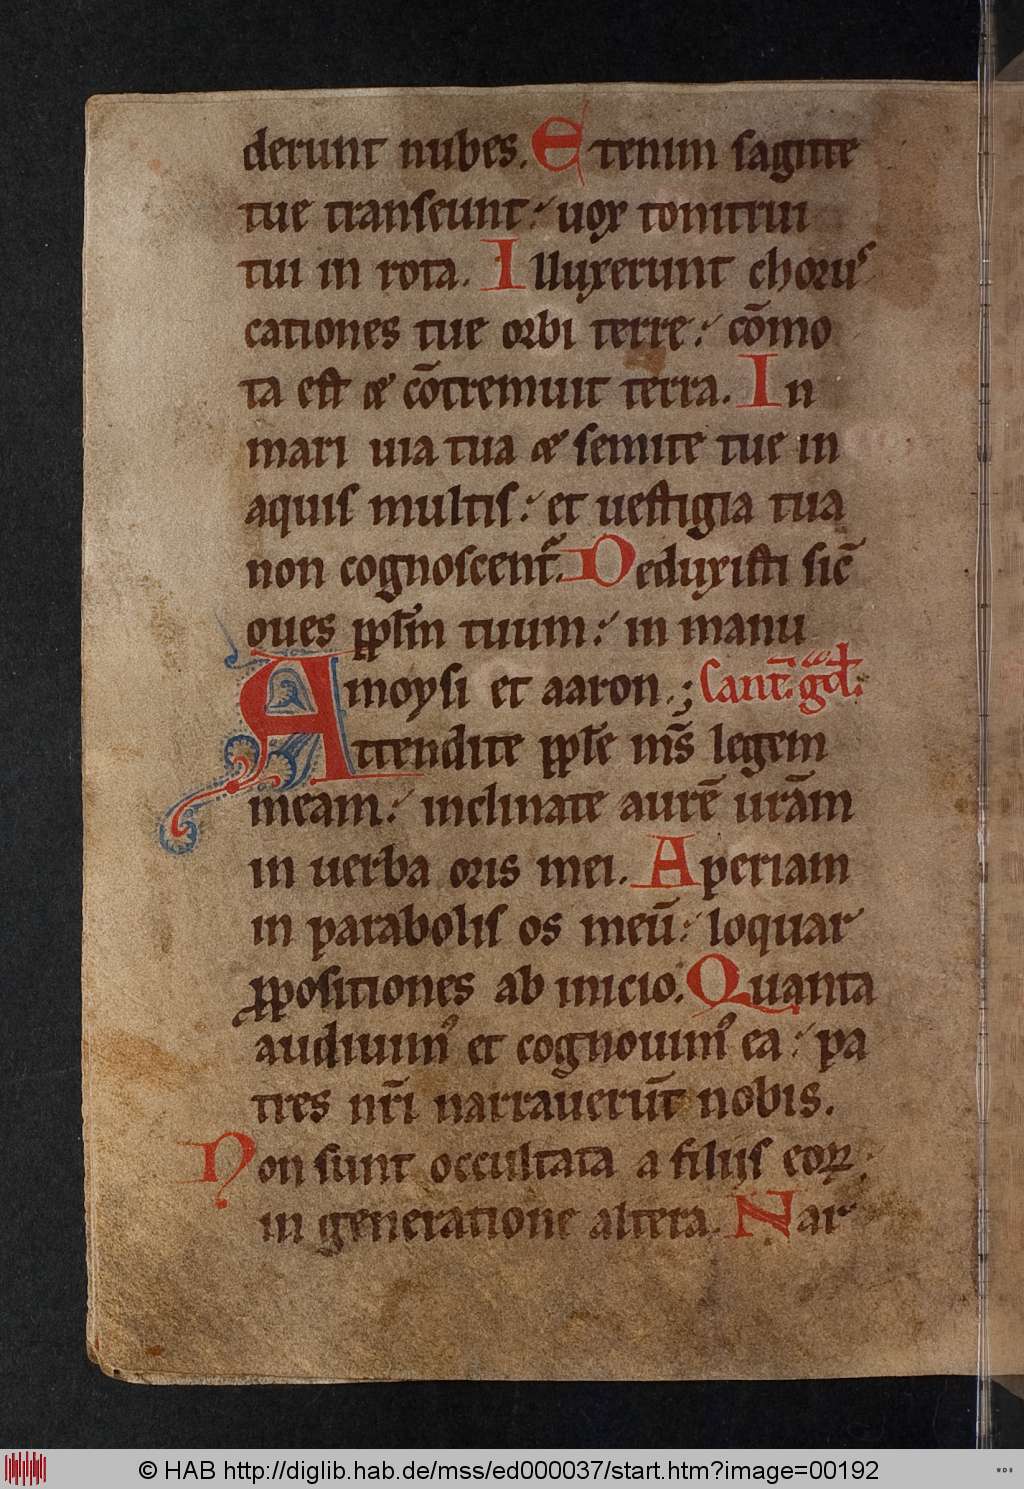 derunt nubes. Etenim sagitte
tue transeunt: uox tonitrui
tui in rota. Illuxerunt choruſ
cationes tue orbi terre: cōmo
ta est & cōtremuit terra. In
mari uia tua & semite tue in
aquis multis: et uestigia tua
non cognoscent᷑. Deduxisti sic̄
oues pplm̄ tuum: in manu
moysi et aaron.; Sant. gͣdͣl.
Attendite pple m̄s legem
meam: inclinate aurē urām
in uerba oris mei. Aperiam
in parabolis os meū: loquar
ꝓpositiones ab inicio. Quanta
audiuimꝰ et cognouimꝰ ea: pa
tres nr̄i narrauerūt nobis.
Non sunt occultata a filiis eoꝝ
in generatione altera. Nar
© HAB http://diglib.hab.de/mss/ed000037/start.htm?image=00192